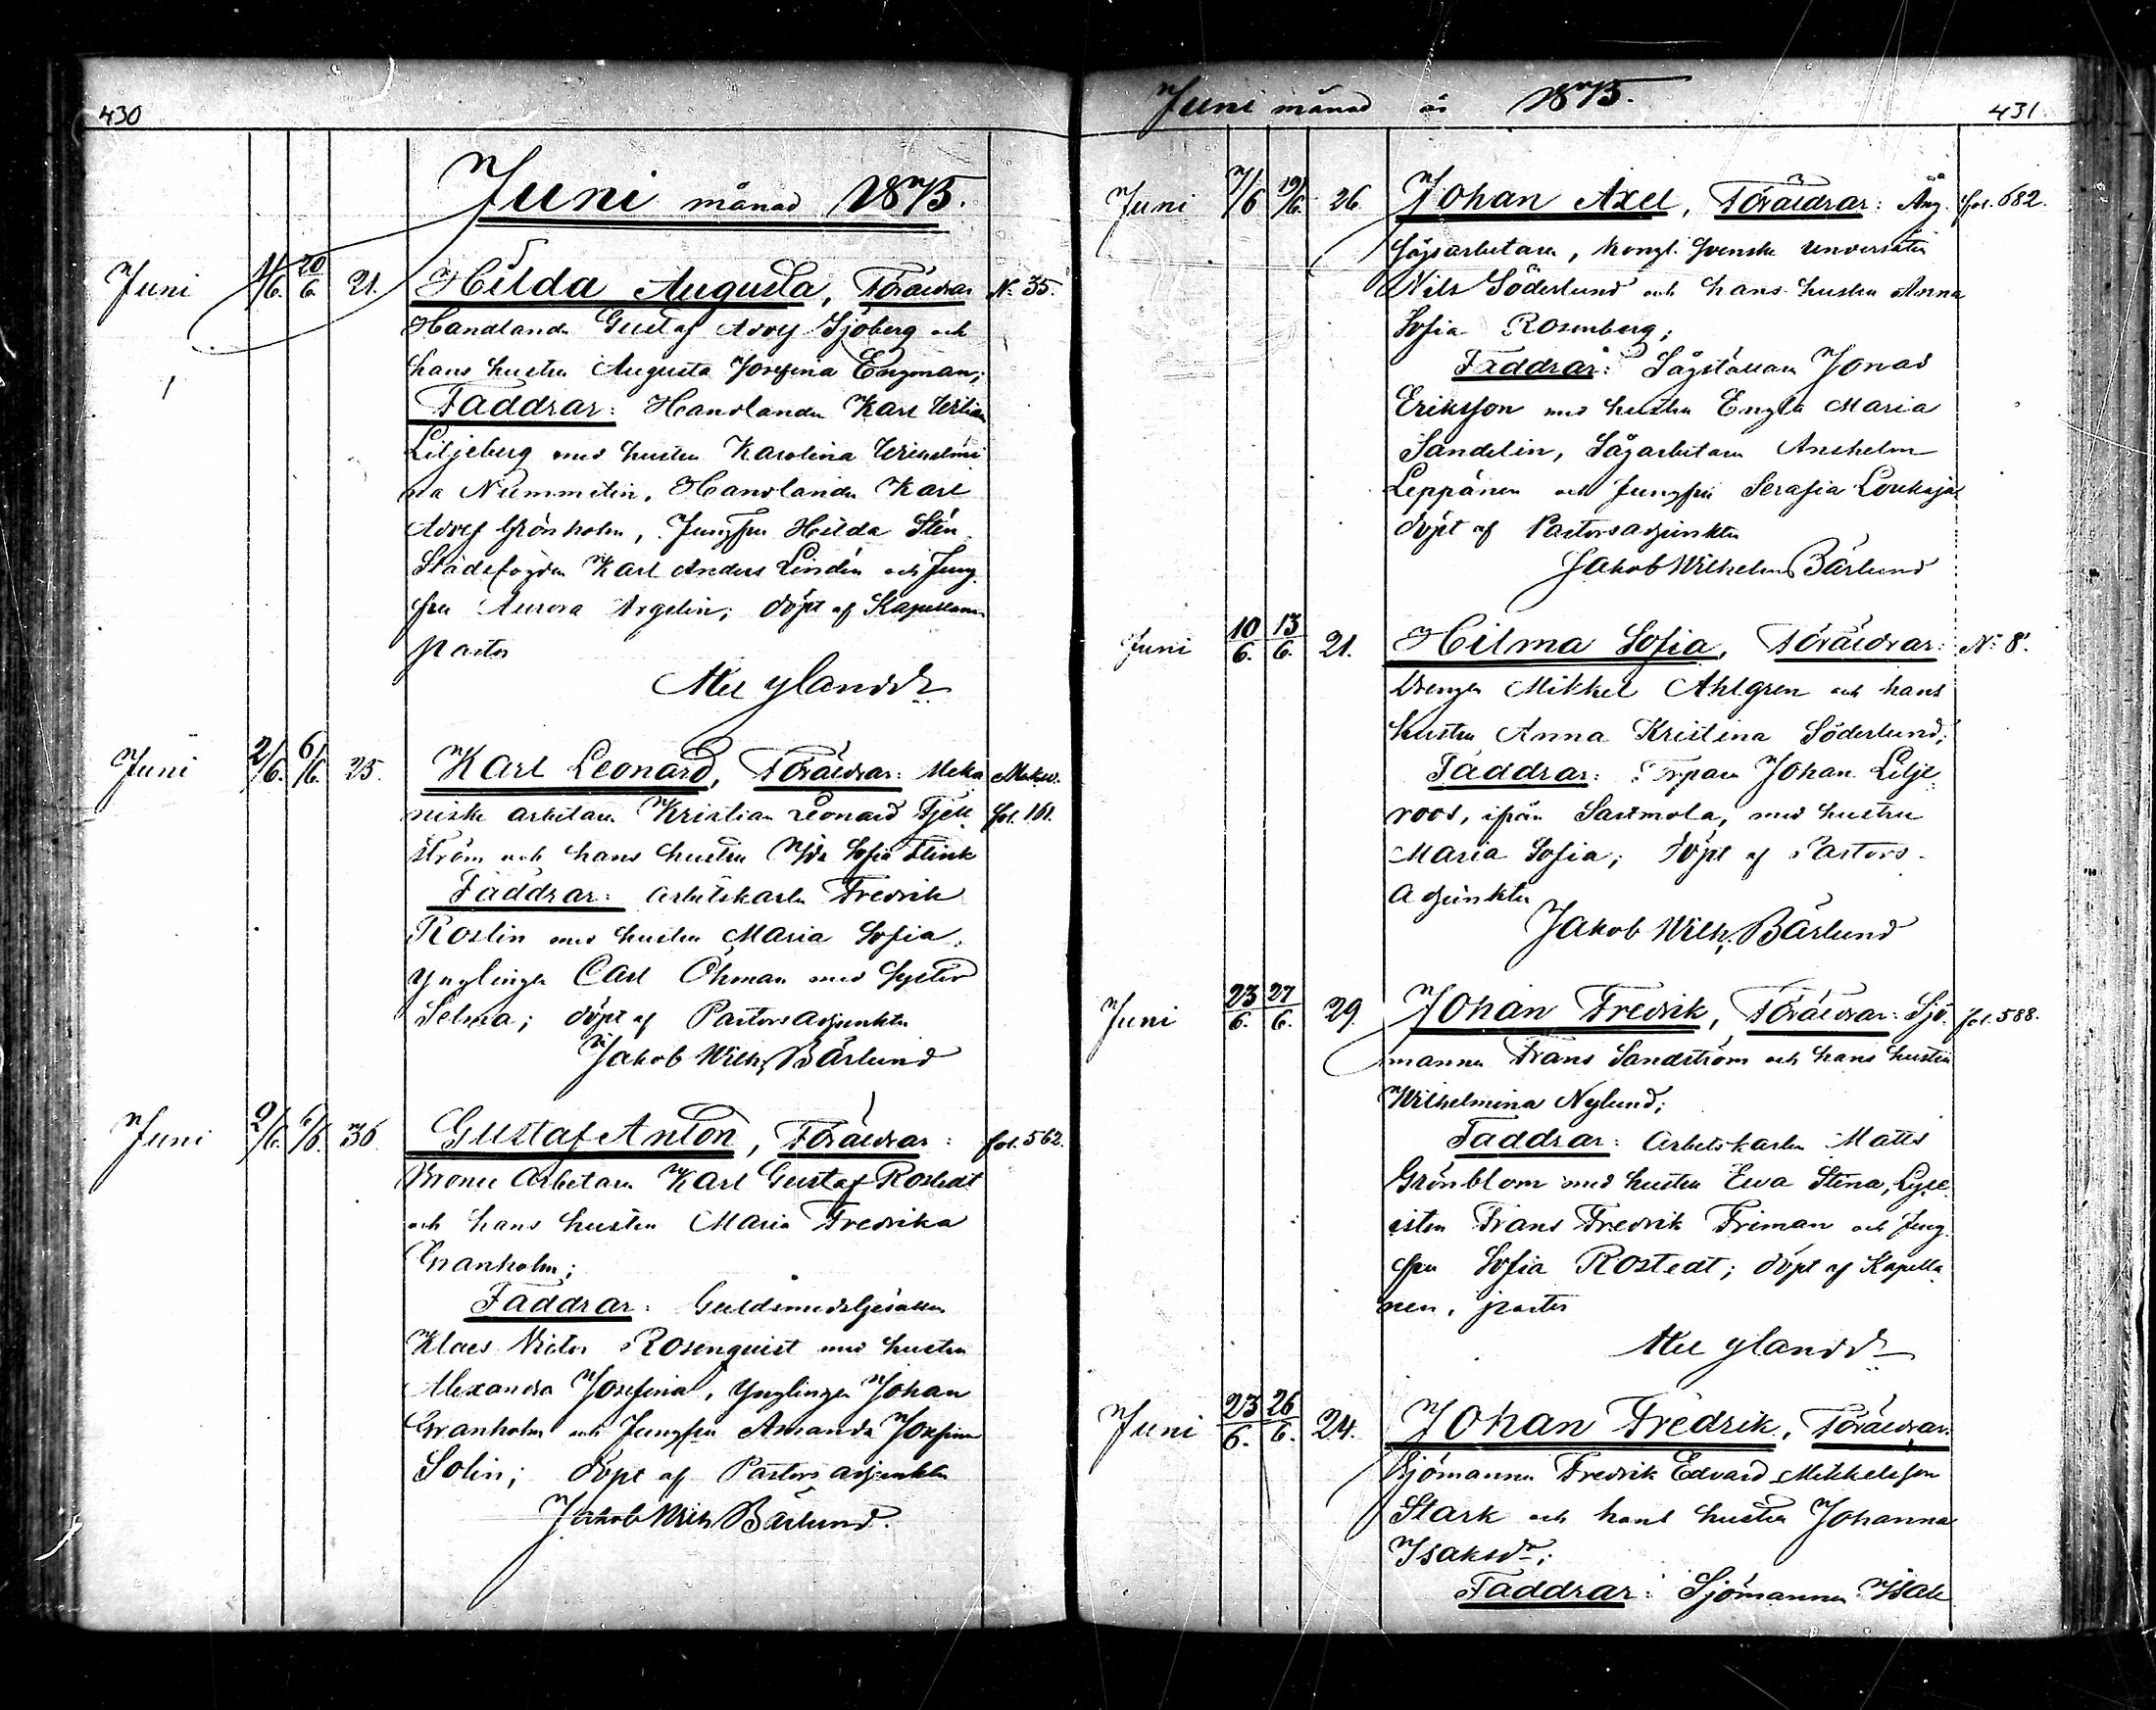 430
Juni månad 1875.
Juni 1/6. 20/6. 21. Hilda Augusta, Föräldrar N:o 35.
Handlanden Gustaf Adolf Sjöberg och
hans hustru Augusta Josefina Engman;
Faddrar: Handlanden Karl
Liljeberg med hustru Karolina Wilhelmi
na Nummelin, Handlanden Karl
Adolf Grönholm, Jungfru Hilda Stén
Stadsfogden Karl Anders Lindén och Jung
fru Aurora Argelin; döpt af Kapellanen
pastor
Ylander
Juni 2/6. 6/6. 25. Karl Leonard, Föräldrar: Meka
niske arbetaren Kristian Leonard Fjell fol. 161.
ström och hans hustru Ida Sofia Flink
Faddrar: arbetskarlen Fredrik
Roslin med hustru Maria Sofia,
Ynglingen Carl Öhman med syster
Selma; döpt af Pastorsadjunkten
Jakob Wilh. Bärlund
Juni 2/6. 6/6. 36. Gustaf Anton, Föräldrar: fol. 562.
Arbetaren Karl Gustaf Rostedt
och hans hustru Maria Fredrika
Granholm;
Faddrar: Guldsmedsgesällen
Klaes Victor Rosenquist med hustru
Alexandra Josefina, Ynglingen Johan
Granholm och Jungfru Amanda Josefina
Solin; döpt af Pastorsadjunkten
Jakob Wilh Bärlund.
Juni månad år 1875.
431
Juni 7/6 19/6. 26. Johan Axel, Föräldrar: Ång. fol. 682.
sågsarbetaren, Kongl. Svenska undersåten
Nils Söderlund och hans hustru Anna
Sofia Rosenberg;
Faddrar: Sågställaren Jonas
Eriksson med hustru Engla Maria
Sandelin, Sågarbetaren Anshelm
Leppänen och Jungfru Serafia
döpt af Pastorsadjunkten
Jakob Wilhelm Bärlund
Juni 10/6. 13/6. 21. Hilma Sofia, Föräldrar: N:o 8.
Drengen Mikkel Ahlgren och hans
hustru Anna Kristina Söderlund;
Faddrar: Torparen Johan Lilje
roos, ifrån Sastmola, med hustru
Maria Sofia; döpt af Pastors-
adjunkten
Jakob Wilh. Bärlund
Juni 23/6. 27/6. 29. Johan Fredrik, Föräldrar: Sjö. fol. 588.
mannen Frans Sandström och hans hustru
Wilhelmina Nylund;
Faddrar: arbetskarlen Matts
Grönblom med hustru Ewa Stina, Lyce
isten Frans Fredrik Friman och Jung
fru Sofia Rostedt; döpt af Kapella
nen, pastor
Ylander
Juni 23/6. 26/6. 24. Johan Fredrik, Föräldrar:
Sjömannen Fredrik Edvard Mikkelsson
Stark och hans hustru Johanna
Isaksdr;
Faddrar: Sjömannen Isak